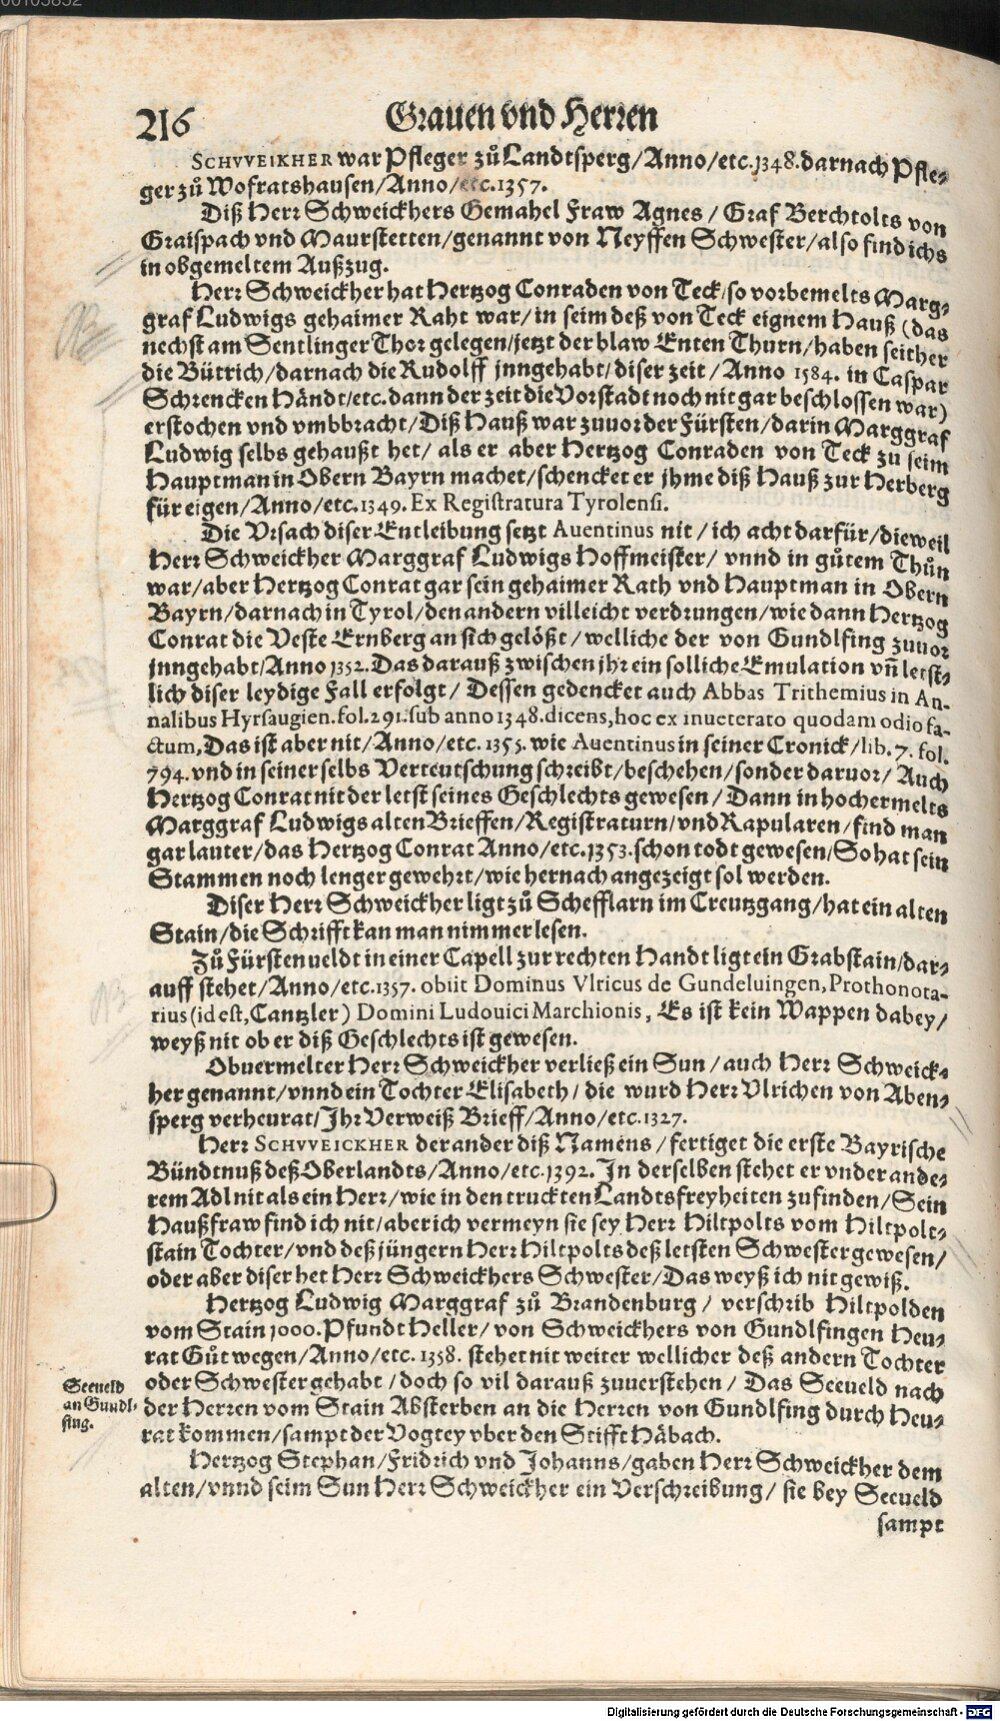 216
Grauen vnd Herren
SCHVVEIKHER war Pfleger zů Landtsperg/Anno/etc.1348.darnach Pfle-
ger zů Wofratshausen/Anno/etc.1357.
Diß Herr Schweickhers Gemahel Fraw Agnes/ Graf Berchtolts von
Graispach vnd Maurstetten/genannt von Neyffen Schwester/also find ichs
in obgemeltem Außzug.
Herr Schweickher hat Hertzog Conraden von Teck/so vorbemelts Marg-
graf Ludwigs gehaimer Raht war/in seim deß von Teck eignem Hauß (das
nechst am Sentlinger Thor gelegen/jetzt der blaw Enten Thurn/haben seither
die Bütrich/darnach die Rudolff jnngehabt/diser zeit/Anno 1584. in Caspar
Schrencken Händt/etc.dann der zeit die Vorstadt noch nit gar beschlossen war)
erstochen vnd vmbbracht/Diß Hauß war zuuor der Fürsten/darin Marggraf
Ludwig selbs gehaußt het/ als er aber Hertzog Conraden von Teck zu seim
Hauptman in Obern Bayrn machet/schencket er jhme diß Hauß zur Herberg
für eigen/Anno/etc.1349. Ex Registratura Tyrolensi.
Die Vrsach diser Entleibung setzt Auentinus nit/ich acht darfür/dieweil
Herr Schweickher Marggraf Ludwigs Hoffmeister/ vnnd in gůtem Thůn
war/aber Hertzog Conrat gar sein gehaimer Rath vnd Hauptman in Obern
Bayrn/darnach in Tyrol/den andern villeicht verdrungen/wie dann Hertzog
Conrat die Veste Ernberg an sich gelößt/welliche der von Gundlfing zuuor
jnngehabt/Anno 1352. Das darauß zwischen jhr ein solliche Emulation vñ letst-
lich diser leydige Fall erfolgt/ Dessen gedencket auch Abbas Trithemius in An-
nalibus Hyrsaugien.fol.291.sub anno 1348.dicens,hoc ex inueterato quodam odio fa-
ctum, Das ist aber nit/Anno/etc.1355. wie Auentinus in seiner Cronick/lib.7.fol.
794.vnd in seiner selbs Verteutschung schreibt/beschehen/sonder daruor/ Auch
Hertzog Conrat nit der letst seines Geschlechts gewesen/ Dann in hochermelts
Marggraf Ludwigs alten Brieffen/Registraturn/vnd Rapularen/find man
gar lauter/das Hertzog Conrat Anno/etc.1353.schon todt gewesen/So hat sein
Stammen noch lenger gewehrt/wie hernach angezeigt sol werden.
Diser Herr Schweickher ligt zů Schefflarn im Creutzgang/hat ein alten
Stain/die Schrifft kan man nimmer lesen.
Zů Fürstenueldt in einer Capell zur rechten Handt ligt ein Grabstain/dar-
auff stehet/Anno/etc.1357. obiit Dominus Vlricus de Gundeluingen, Prothonota-
rius (id est, Cantzler) Domini Ludouici Marchionis, Es ist kein Wappen dabey/
weyß nit ob er diß Geschlechts ist gewesen.
Obuermelter Herr Schweickher verließ ein Sun/auch Herr Schweick-
her genannt/vnnd ein Tochter Elisabeth/ die wurd Herr Vlrichen von Aben-
sperg verheurat/Jhr Verweiß Brieff/Anno/etc.1327.
Herr SCHVVEICKHER der ander diß Namens/fertiget die erste Bayrische
Bündtnuß deß Oberlandts/Anno/etc.1392. In derselben stehet er vnder ande-
rem Adl nit als ein Herr/wie in den truckten Landtsfreyheiten zu finden/Sein
Haußfraw find ich nit/aber ich vermeyn sie sey Herr Hiltpolts vom Hiltpolt-
stain Tochter/vnd deß jüngern Herr Hiltpolts deß letsten Schwester gewesen/
oder aber diser het Herr Schweickhers Schwester/Das weyß ich nit gewiß.
Hertzog Ludwig Marggraf zů Brandenburg/ verschrib Hiltpolden
vom Stain 1000. Pfundt Heller/ von Schweickhers von Gundlfingen Heu-
rat Gůt wegen/Anno/etc. 1358. stehet nit weiter wellicher deß andern Tochter
oder Schwester gehabt/doch so vil darauß zuuerstehen/ Das Seeueld nach
Seeueld
an Gundl-
fing.
der Herren vom Stain Absterben an die Herren von Gundlfing durch Heu-
rat kommen/sampt der Vogtey vber den Stifft Häbach.
Hertzog Stephan/Fridrich vnd Johanns/gaben Herr Schweickher dem
alten/vnnd seim Sun Herr Schweickher ein Verschreibung/ sie bey Seeueld
sampt
Digitalisierung gefördert durch die Deutsche Forschungsgemeinschaft - DFG